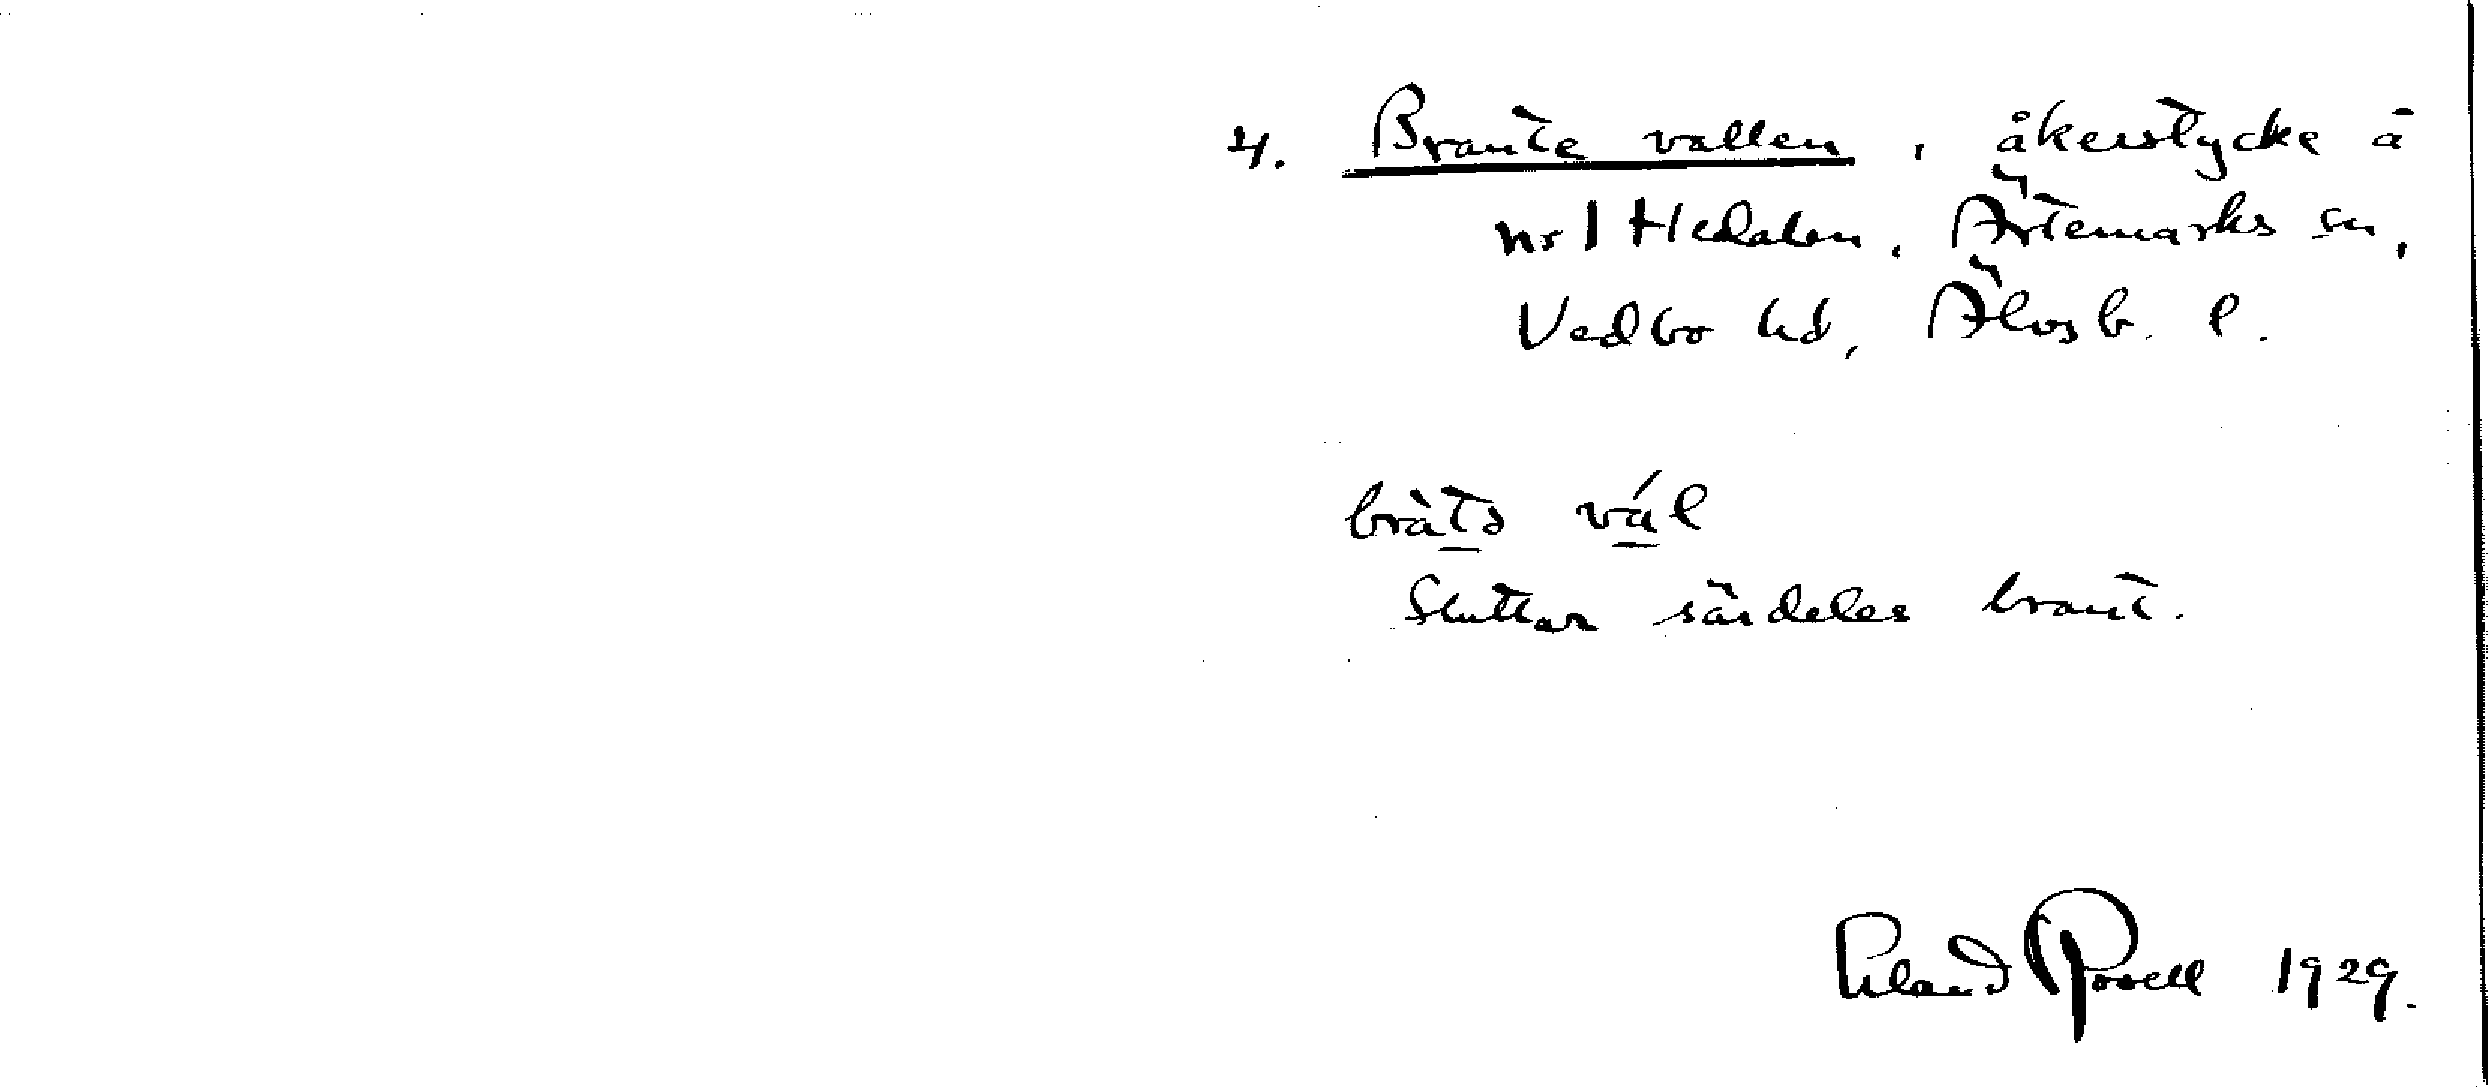 4. Brante vallen, åkerstycke å
nr 1 Hedalen, Ärtemarks sn,
Vedbo hd, Älvsb. l.
bràtə vál
Sluttar särdeles brant.
Erland Rosell 1929.